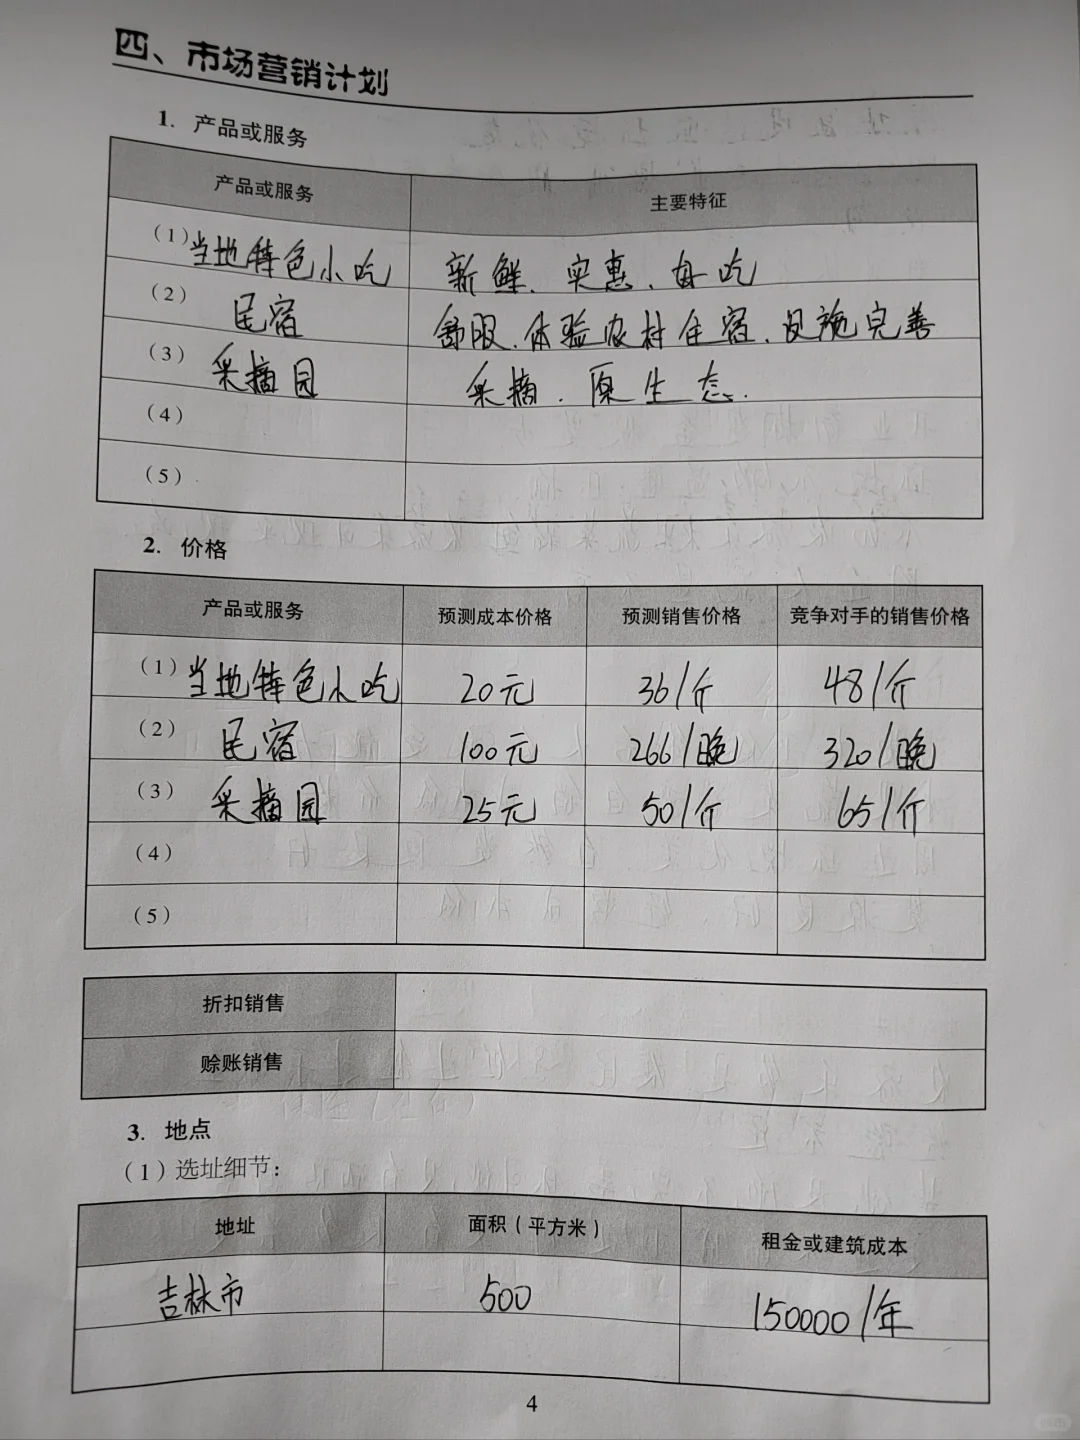 四、市场营销计划
1. 产品或服务
产品或服务 主要特征
(1) 当地特色小吃 新鲜、实惠、好吃
(2) 民宿 舒服、体验农村住宿、设施完善
(3) 采摘园 采摘、原生态.
(4)
(5)
2. 价格
产品或服务 预测成本价格 预测销售价格 竞争对手的销售价格
(1) 当地特色小吃 20元 36/斤 48/斤
(2) 民宿 100元 266/晚 320/晚
(3) 采摘园 25元 50/斤 65/斤
(4)
(5)
折扣销售
赊账销售
3. 地点
(1)选址细节:
地址 面积(平方米) 租金或建筑成本
吉林市 500 150000/年
4